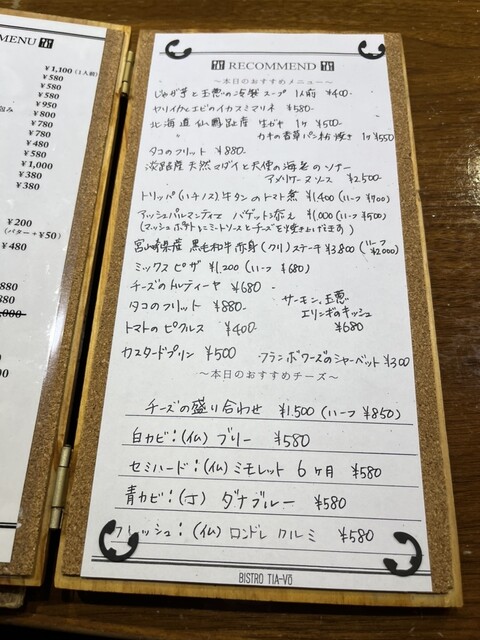 MENU
¥1,100 (1人前)
¥580
¥580
¥580
¥950
包み ¥800
¥780
¥480
¥580
¥1,000
¥380
¥380
¥200
(バター+¥50)
¥480
880
880
,000
RECOMMEND
〜本日のおすすめメニュー〜
じゃが芋と玉葱の冷製スープ 1人前 ¥400-
ヤリイカとエビのイカスミマリネ ¥580-
北海道 仙鳳趾産 生ガキ 1ケ ¥500-
〃 カキの香草パン粉焼き 1ケ ¥550
タコのフリット ¥880.
淡路産 天然マダイと天使の海老のソテー
アメリケーヌソース ¥2,500
トリッパ(ハチノス)牛タンのトマト煮 ¥1,400 (ハーフ ¥700)
アッシュパルマンティエ バゲット添え ¥1,000 (ハーフ ¥500)
(マッシュポテトにミートソースとチーズを焼き上げます)
宮崎県産 黒毛和牛 赤身(クリ)ステーキ ¥3,800 (ハーフ ¥2,000)
ミックスピザ ¥1,200 (ハーフ ¥680)
チーズのトルティーヤ ¥680-
タコのフリット ¥880-
サーモン、玉葱
エリンギのキッシュ
¥680
トマトのピクルス ¥400-
カスタードプリン ¥500
フランボワーズのシャーベット ¥300
〜本日のおすすめチーズ〜
チーズの盛り合わせ ¥1,500 (ハーフ ¥850)
白カビ:(仏) ブリー ¥580
セミハード:(仏) ミモレット 6ヶ月 ¥580
青カビ:(丁) ダナブルー ¥580
フレッシュ:(仏) ロンドレ クルミ ¥580
BISTRO TIA-VŌ